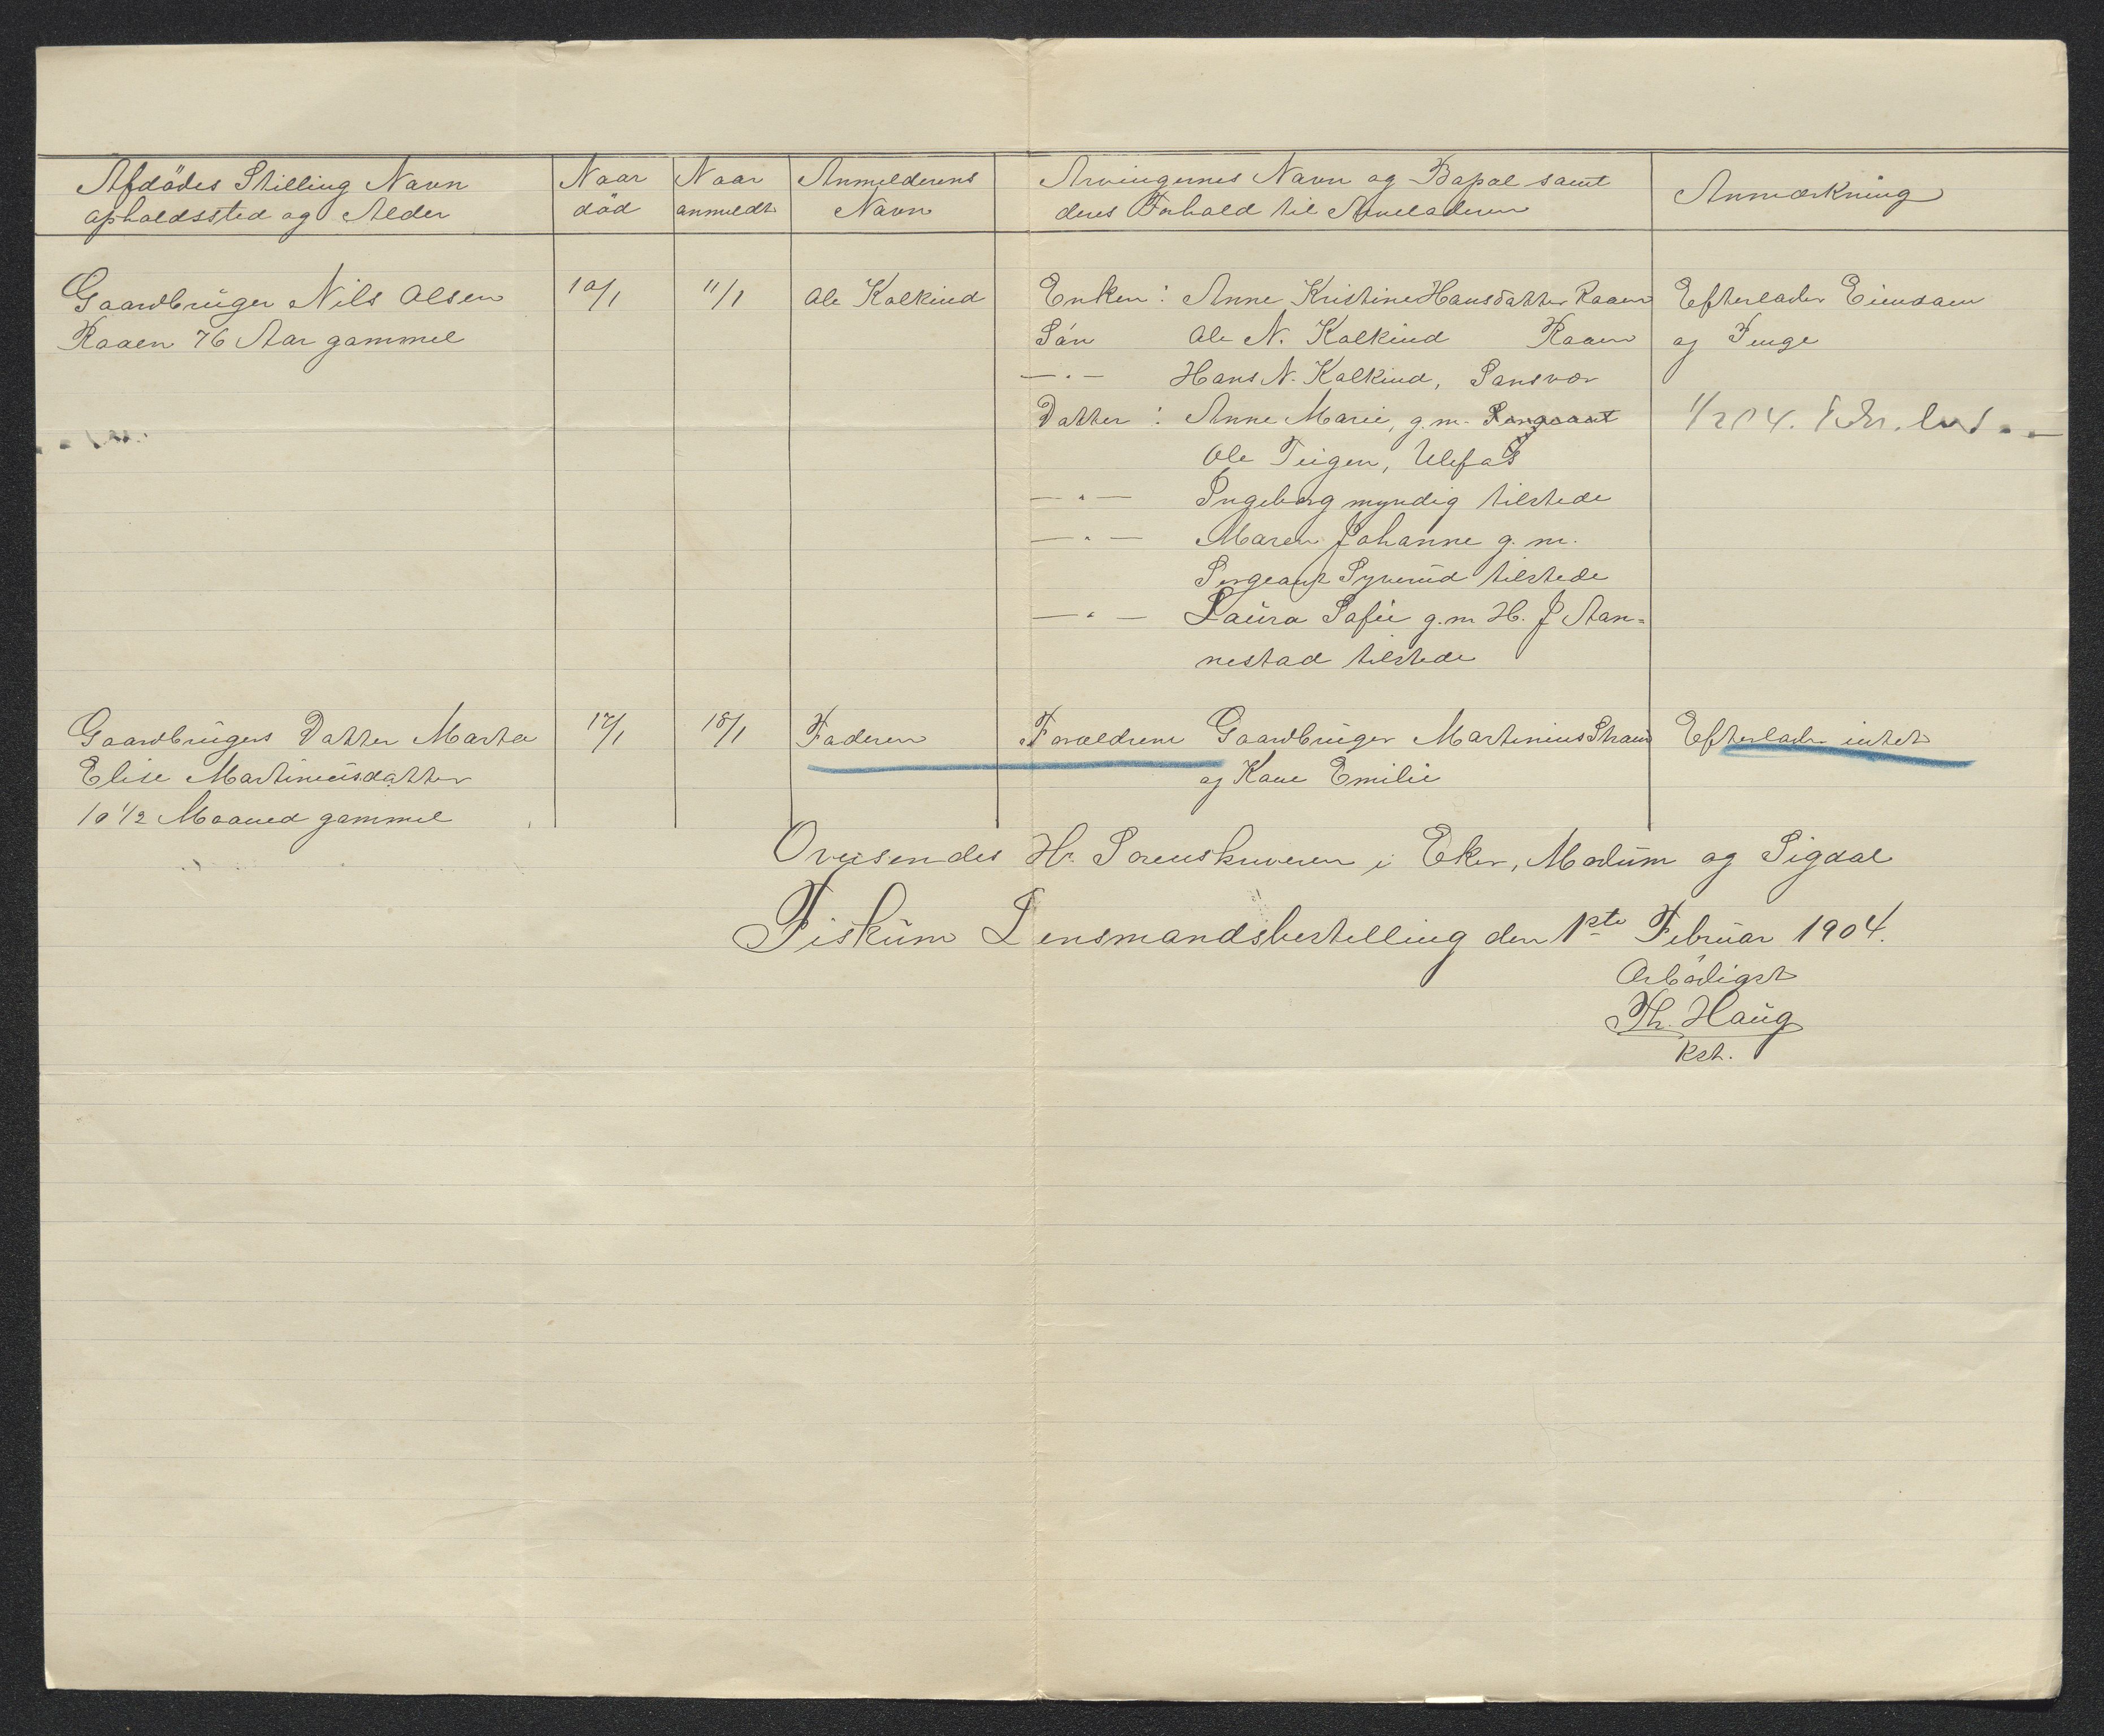 Afdödes Stilling Navn
opholdssted og Alder
Naar
död
Naar
anmeldt
Anmelderens
Navn
Arvingernes Navn og Bopæl samt
deres Forhold til Arveladeren
Anmærkning
Gaardbruger Nils Olsen
Raaen 76 Aar gammel
10/1
11/1
Ole Kolkind
Enken: Anne Kristine Hansdatter Raaen
Sön Ole N. Kolkind Raaen
—"— Hans N. Kolkind, Sansvær
Datter: Anne Marie, g.m.
Ole Teigen, Ulefos
—"— Ingeborg myndig tilstede
—"— Maren Johanne g. m.
Sergeant Syverud tilstede
—"— Laura Sofie g.m H. J Aan=
nestad tilstede
Efterlader Eiendom
og Penge
1/2 04.
Gaardbrugers Datter Marta
Elise Martiniusdatter
10 1/2 Maaned gammel
17/1
18/1
Faderen
Forældrene Gaardbruger Martinius Strand
og Kone Emilie
Efterlader intet
Oversendes Hr. Sorenskriveren i Eker, Modum og Sigdal
Fiskum Lensmandsbestilling den 1ste Februar 1904.
Ærbödigst
Th. Haug
Kst.